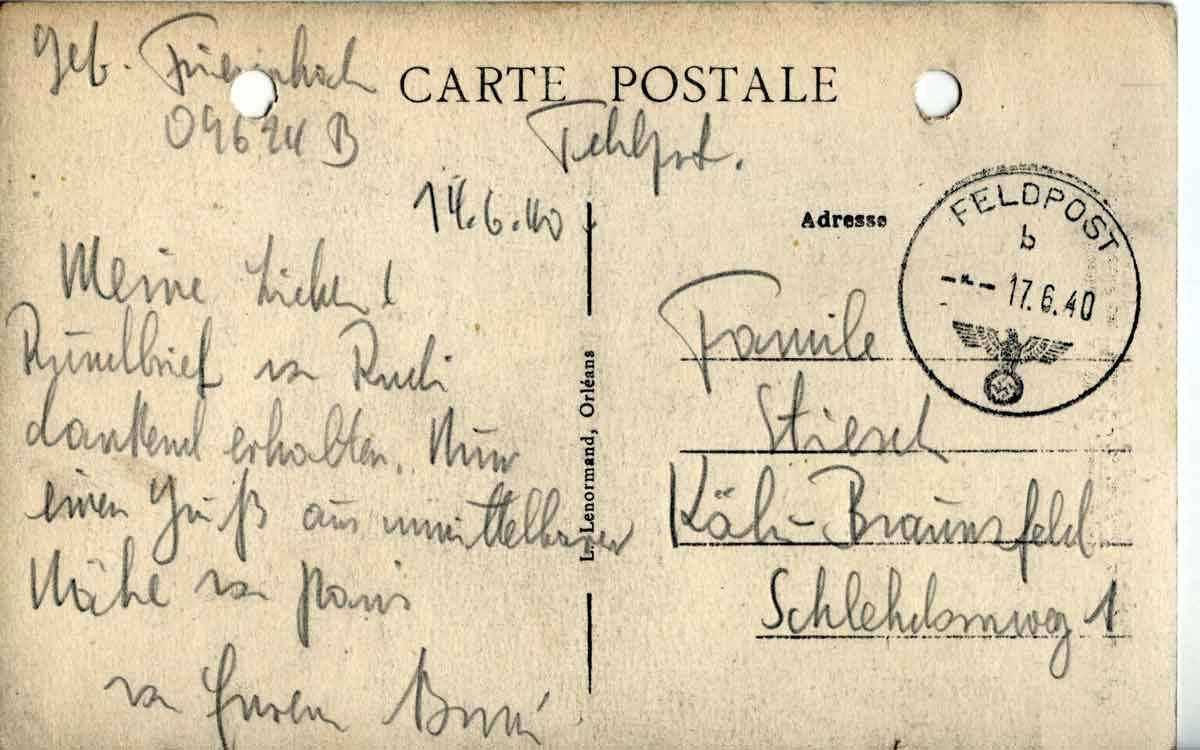 Gef.
09624 B
CARTE POSTALE
Feldpost.
14.6.40
Meine Lieben!
Rundbrief von Rudi
dankend erhalten. Nun
einen Gruß aus unmittelbarer
Nähe von Paris
von Eurem
L. Lenormand, Orléans
Adresse
FELDPOST
b
17.6.40
Familie
Köln-Braunsfeld
Schlehdornweg 1